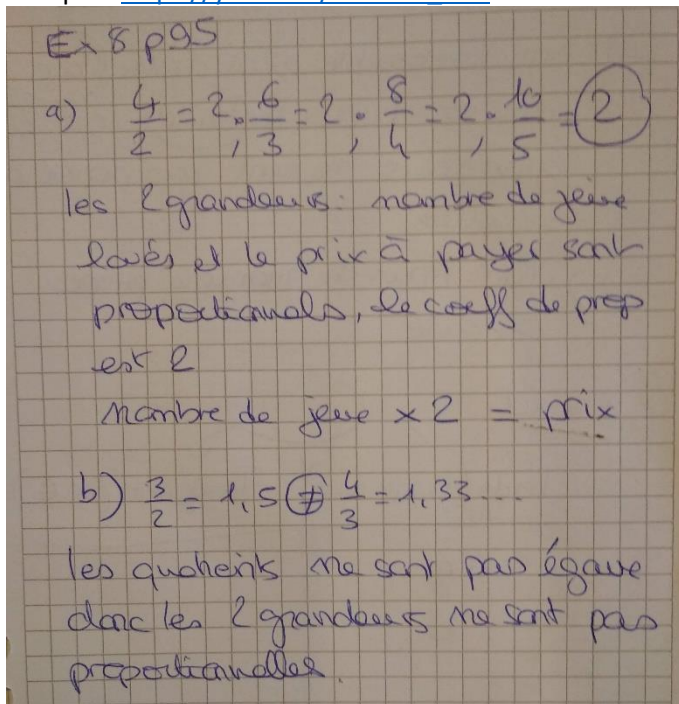 Ex 8 p95
a) 4/2 = 2 ; 6/3 = 2 ; 8/4 = 2 ; 10/5 = 2
les 2 grandeurs : nombre de jeux
loués et le prix à payer sont
proportionnels, le coeff de prop
est 2
nombre de jeux × 2 = prix
b) 3/2 = 1,5 ≠ 4/3 = 1,33...
les quotients ne sont pas égaux
donc les 2 grandeurs ne sont pas
proportionnelles.